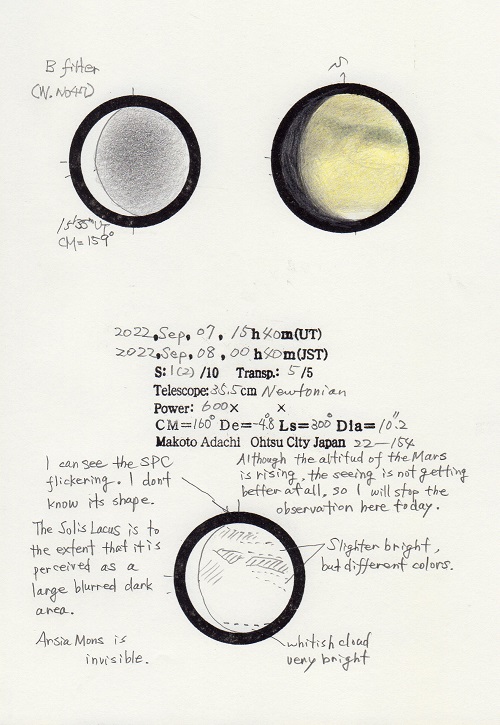 B filter
(W. No47)
S
15h35mUT
CM=159°
2022, Sep, 07, 15h40m(UT)
2022, Sep, 08, 00h40m(JST)
S: 1(2) /10 Transp.: 5 /5
Telescope: 35.5cm Newtonian
Power: 600× ×
CM=160° De=-4.8° Ls=300° Dia=10.2"
Makoto Adachi Ohtsu City Japan 22-154
I can see the SPC
flickering. I dont
know its shape.
Although the altitud of the Mars
is rising, the seeing is not getting
better at all, so I will stop the
observation here today.
The Solis Lacus is to
the extent that it is
perceived as a
large blurred dark
area.
Slighter bright,
but different colors.
Arsia Mons is
invisible.
whitish cloud
very bright